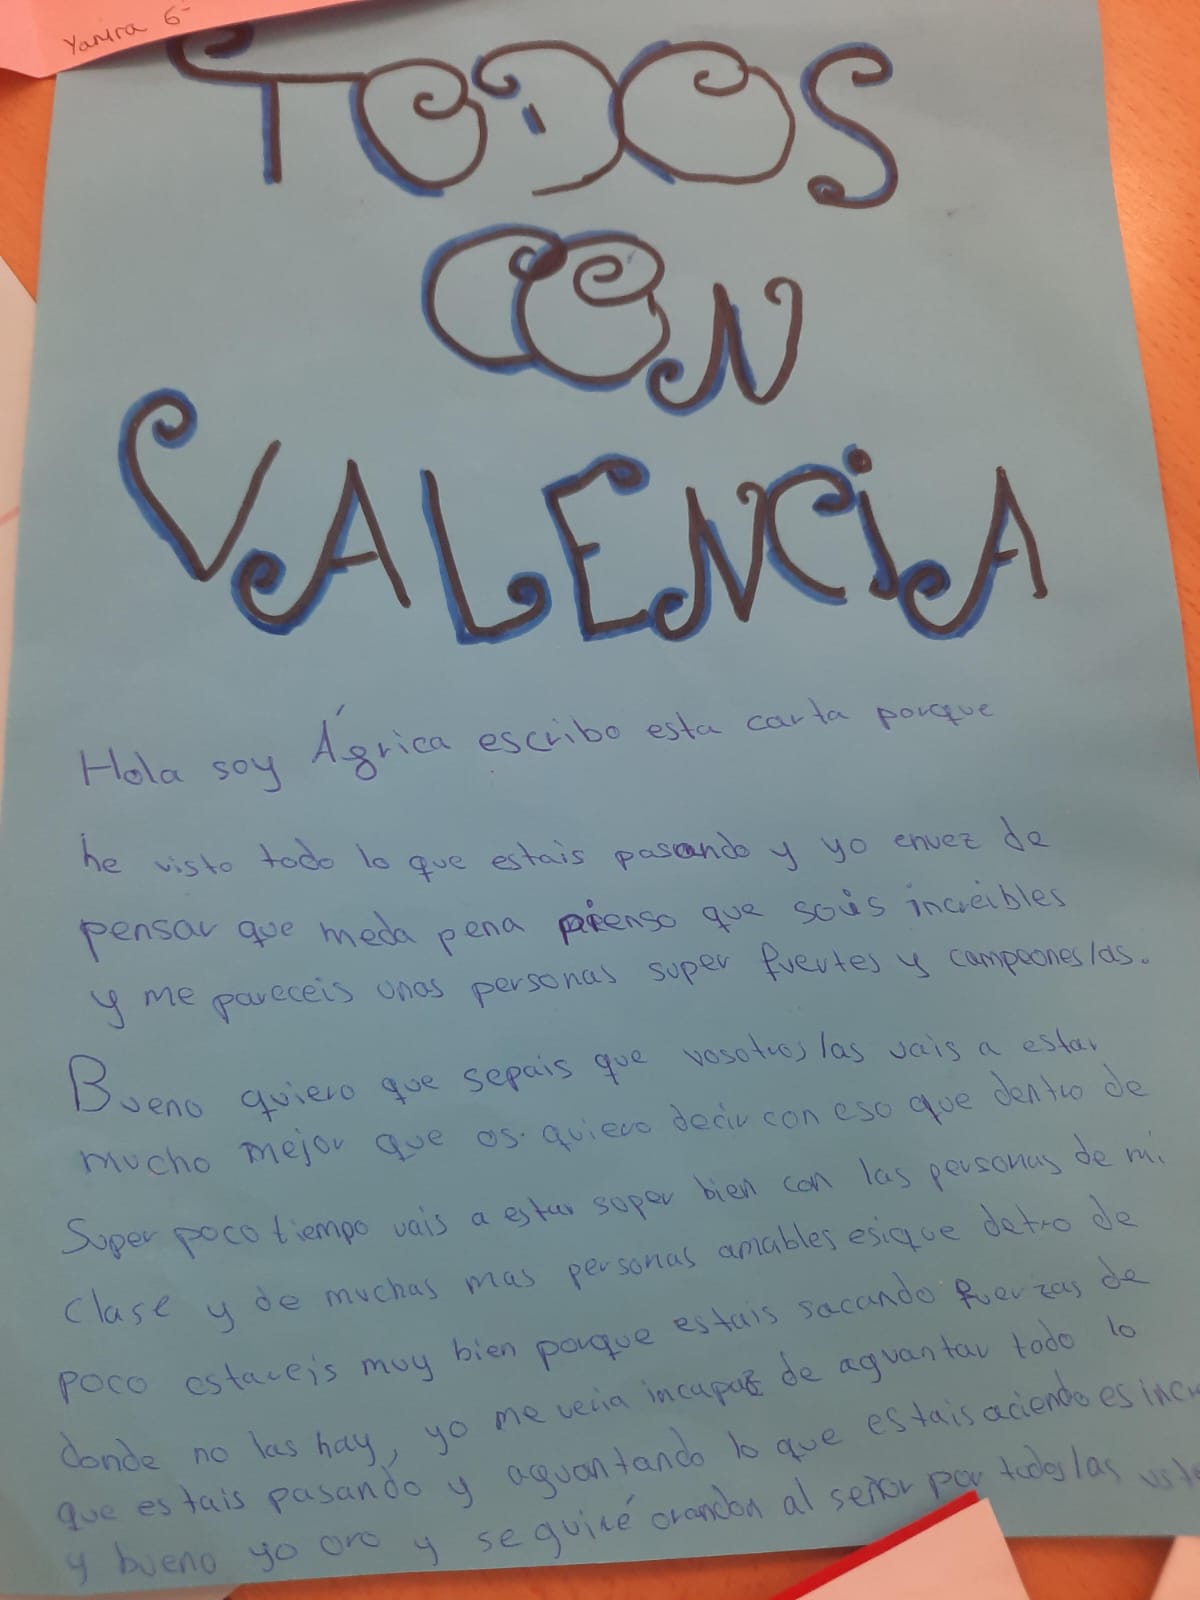 Yanira 6º
TODOS
CON
VALENCIA
Hola soy Ágrica escribo esta carta porque
he visto todo lo que estais pasando y yo envez de
pensar que meda pena pienso que sois increibles
y me pareceis unas personas super fuertes y campeones/as.
Bueno quiero que sepais que vosotros/as vais a estar
mucho mejor que os quiero decir con eso que dentro de
super poco tiempo vais a estar super bien con las personas de mi
clase y de muchas mas personas amables esique detro de
poco estareis muy bien porque estais sacando fuerzas de
donde no las hay, yo me veria incapaz de aguantar todo lo
que estais pasando y aguantando lo que estais aciendo es incre
y bueno yo oro y seguiré orandon al señor por todos/as